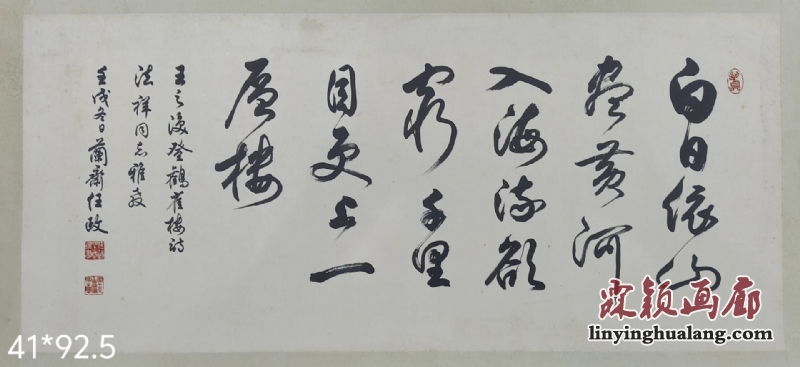 白日依山
盡黄河
入海流欲
窮千里
目更上一
層樓
王之涣登鶴雀樓詩
法祥同志雅教
壬戌冬日蘭齋任政
霖颖画廊
linyinghualang.com
41*92.5